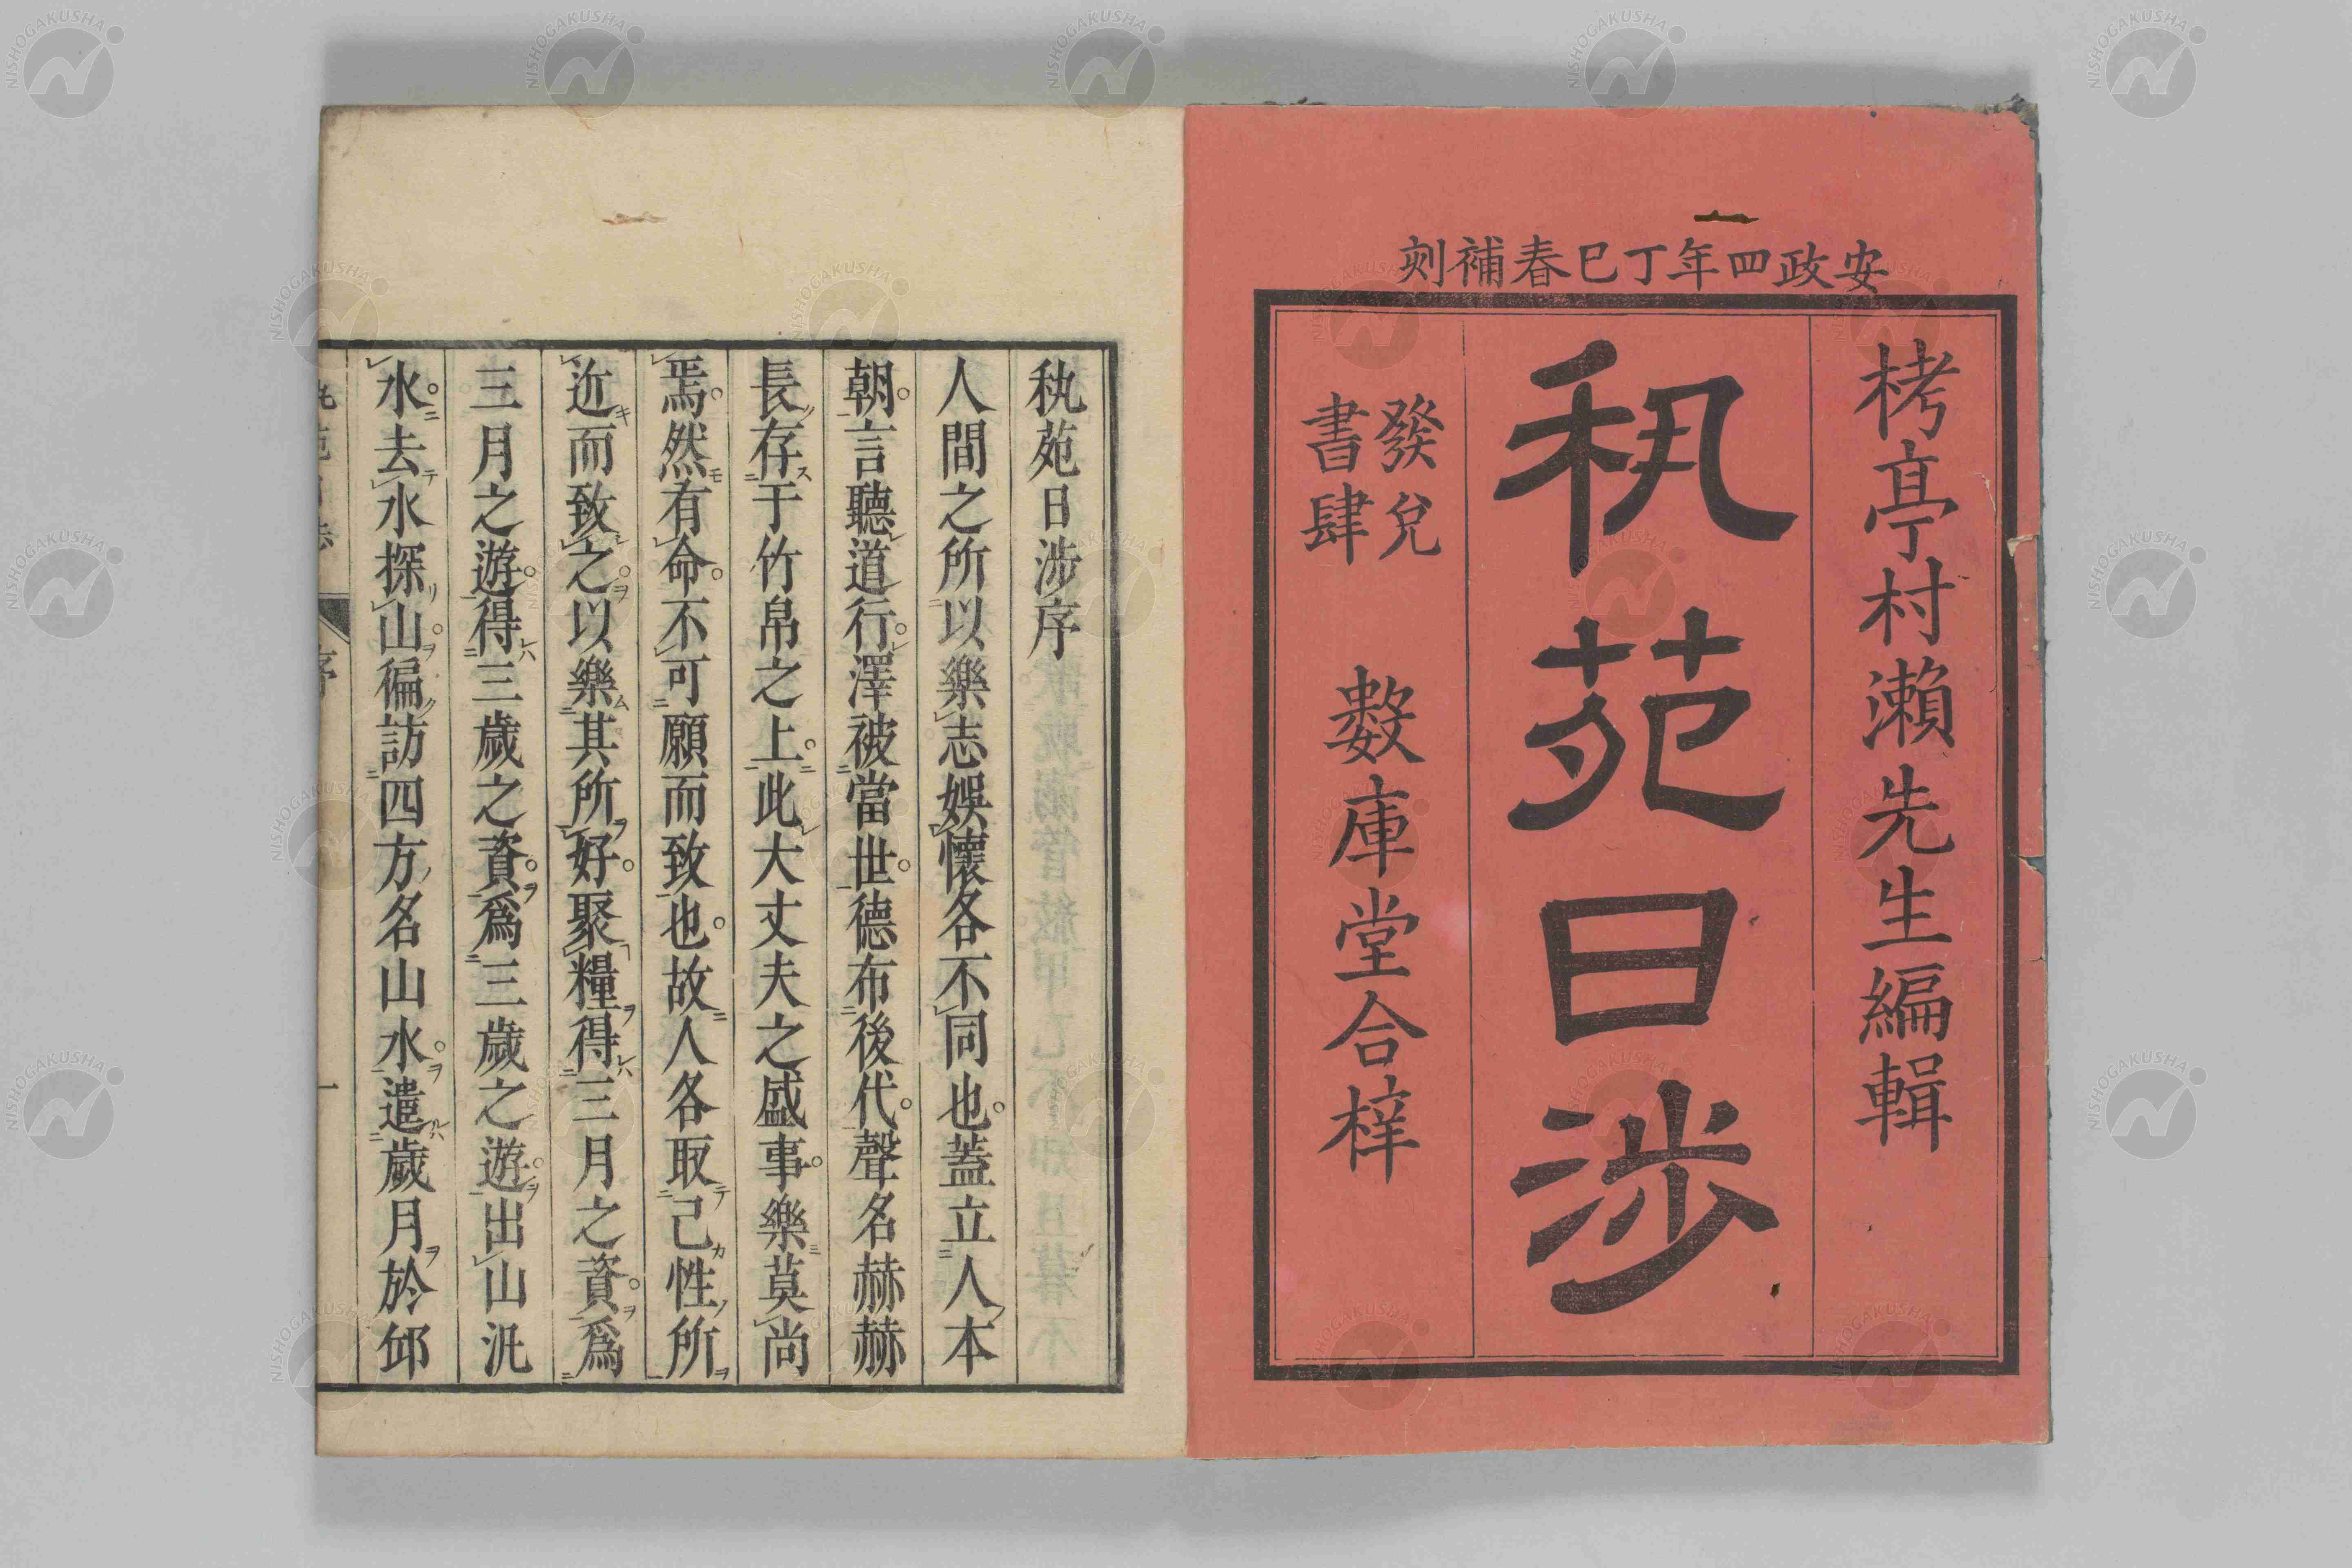 安政四年丁巳春補刻
栲亭村瀨先生編輯
秇苑日涉
發兌
書肆
數庫堂合梓
秇苑日涉序
人間之所以樂志娛懷各不同也蓋立人本
朝言聽道行澤被當世德布後代聲名赫赫
長存于竹帛之上此大丈夫之盛事樂莫尚
焉然有命不可願而致也故人各取己性所
近而致之以樂其所好聚糧得三月之資爲
三月之遊得三歲之資爲三歲之遊出山汎
水去水探山徧訪四方名山水遣歲月於邱
序
一
NISHOGAKUSHA